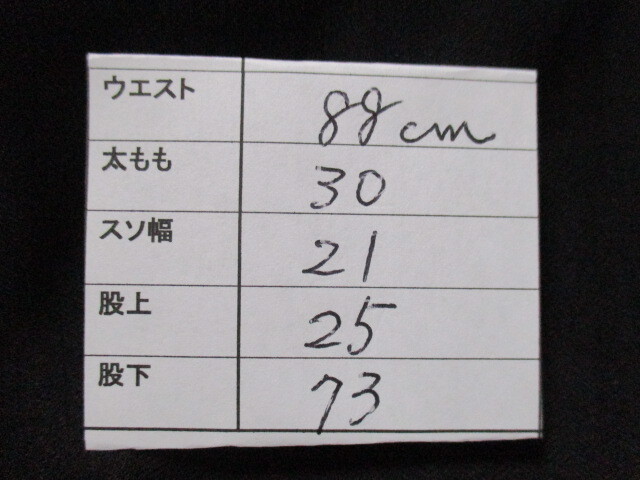 ウエスト 88cm
太もも 30
スソ幅 21
股上 25
股下 73